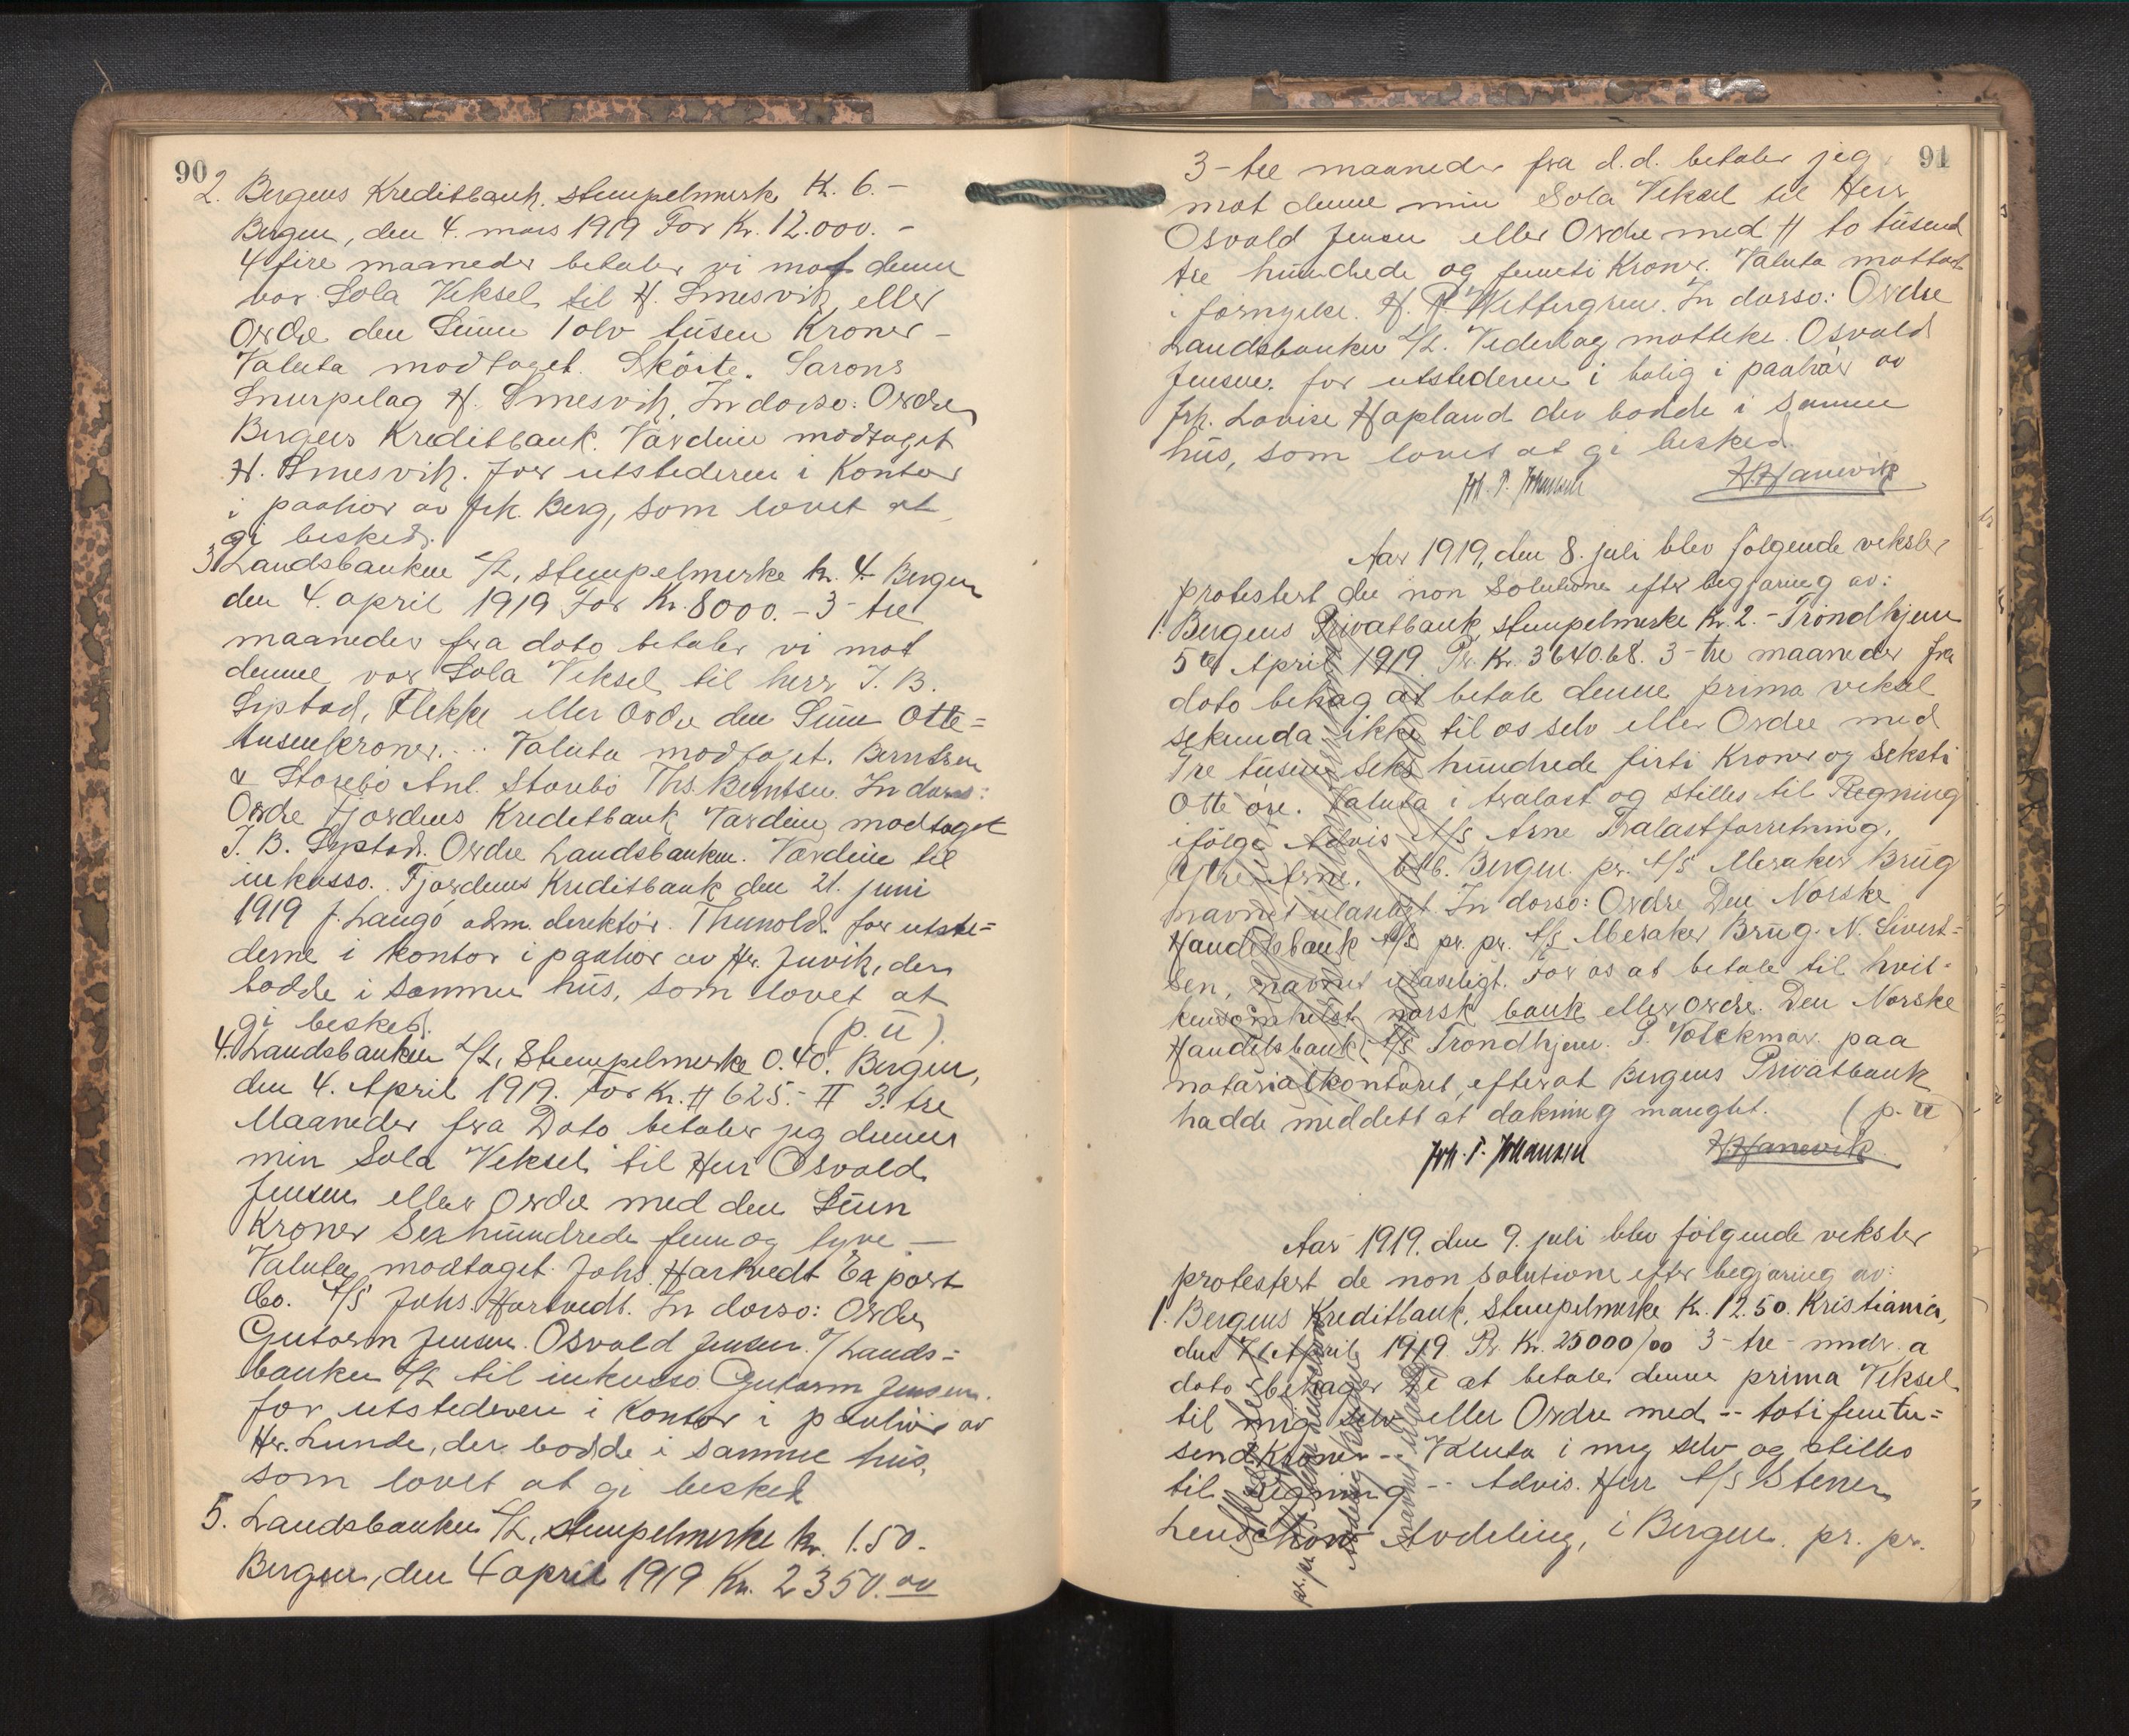 90
2. Bergens Kreditbank, stempelmerke Kr. 6.-
Bergen, den 4. mars 1919 For Kr. 12.000.-
4 fire maaneder betaler vi mot denne
vor Sola Veksel til H. Smesvik eller
Ordre den Sum Tolv tusen Kroner -
Valuta modtaget. Skörte. Sarons
Snurpelag H. Smesvik. In dorso: Ordre
Bergens Kreditbank. Værdien modtaget
H. Smesvik. for utstederen i Kontor
i paahör av frk. Berg, som lovet at
gi besked.
3. Landsbanken A/L, stempelmerke kr. 4. Bergen
den 4. april 1919 For Kr. 8000. - 3 - tre
maaneder fra dato betaler vi mot
denne vor Sola Veksel til herr J. B.
Systad, Flekke eller Ordre den Sum Otte=
tusenkroner. ... Valuta modtaget. Berntsen
& Storebö Anl. Storebö Ths. Berntsen. In dorso:
Ordre Fjordenes Kreditbank Værdien modtaget
J. B. Systad. Ordre Landsbanken. Værdien til
inkasso. Fjordenes Kreditbank den 21. juni
1919 J. Langö adm. direktör. Thunold. for utste=
derne i kontor i paahör av Hr. Juvik, der
bodde i samme hus, som lovet at
gi besked. (p. ū).
4. Landsbanken A/L, Stempelmerke 0.40. Bergen,
den 4. April 1919. For Kr. # 625.- # 3. tre
Maaneder fra Dato betaler jeg denne
min Sola Veksel til Herr Osvald
Jensen eller Ordre med den Sum
Kroner Sexhundrede fem og tyve. -
Valuta modtaget. Johs. Hartvedt Export
Co. A/S Johs. Hartvedt. In dorso: Ordre
Gutorm Jensen. Osvald Jensen. T/ Lands=
banken A/L til inkasso Gutorm Jensen.
for utstederen i kontor i paahör av
Hr. Lunde, der bodde i samme hus,
som lovet at gi besked
5. Landsbanken A/L, stempelmerke kr. 1.50.
Bergen, den 4 april 1919 Kr. 2350.00
91
3 - tre maaneder fra d.d. betaler jeg
mot denne min Sola Veksel til Herr
Osvald Jensen eller Ordre med # to tusend
tre hundrede og femti Kroner. Valuta mottat
i fornyelse. H. P. Wettergren. In dorso: Ordre
Landsbanken A/L. Vederlag . Osvald
Jensen. for utstederen i bolig i paahör av
frk. Lovise Hopland der bodde i samme
hus, som lovet at gi besked.
Joh. P. Johansen H. Hanevik
Aar 1919, den 8. juli blev følgende veksler
protestert de non solutione efter begjæring av:
1. Bergens Privatbank, stempelmerke Kr. 2. - Trondhjem
5te April 1919. Pr. Kr. 3640.68. 3 - tre maaneder fra
dato behag at betale denne prima veksel
sekunda ikke til os selv eller Ordre med
Tre tusen seks hundrede firti Kroner og seksti
Otte öre. Valuta i tralast og stilles til Regning
ifölge Advis A/S Arne Tralastforretning,
Ytre Arne, . Bergen. pr. A/S Meraker Brug
navnet ulæseligt. In dorso: Ordre Den Norske
Handelsbank A/S pr. pr. A/S Meraker Brug. N. Sivert=
sen, navnet ulæseligt. For os at betale til hvil=
kensomhelst norsk bank eller ordre. Den Norske
Handelsbank A/S Trondhjem. P. Volckmar. paa
notarialkontoret, efterat Bergens Privatbank
hadde meddelt at dækning manglet. (p. ū)
Joh. P. Johansen H. Hanevik
Aar 1919. den 9. juli blev følgende veksler
protestert de non solutione efter begjæring av:
1. Bergens Kreditbank, Stempelmerke Kr. 12.50. Kristiania,
den 7. April 1919. Pr. Kr. 25000/00 3 - tre - mndr. a
dato behager De at betale denne prima Veksel
til mig selv eller Ordre med -- toti fem tu=
send Kroner -- Valuta i mig selv og stilles
til Regning -- Advis. Herr A/S Stener
Lenschow Avdeling, i Bergen. pr. pr.